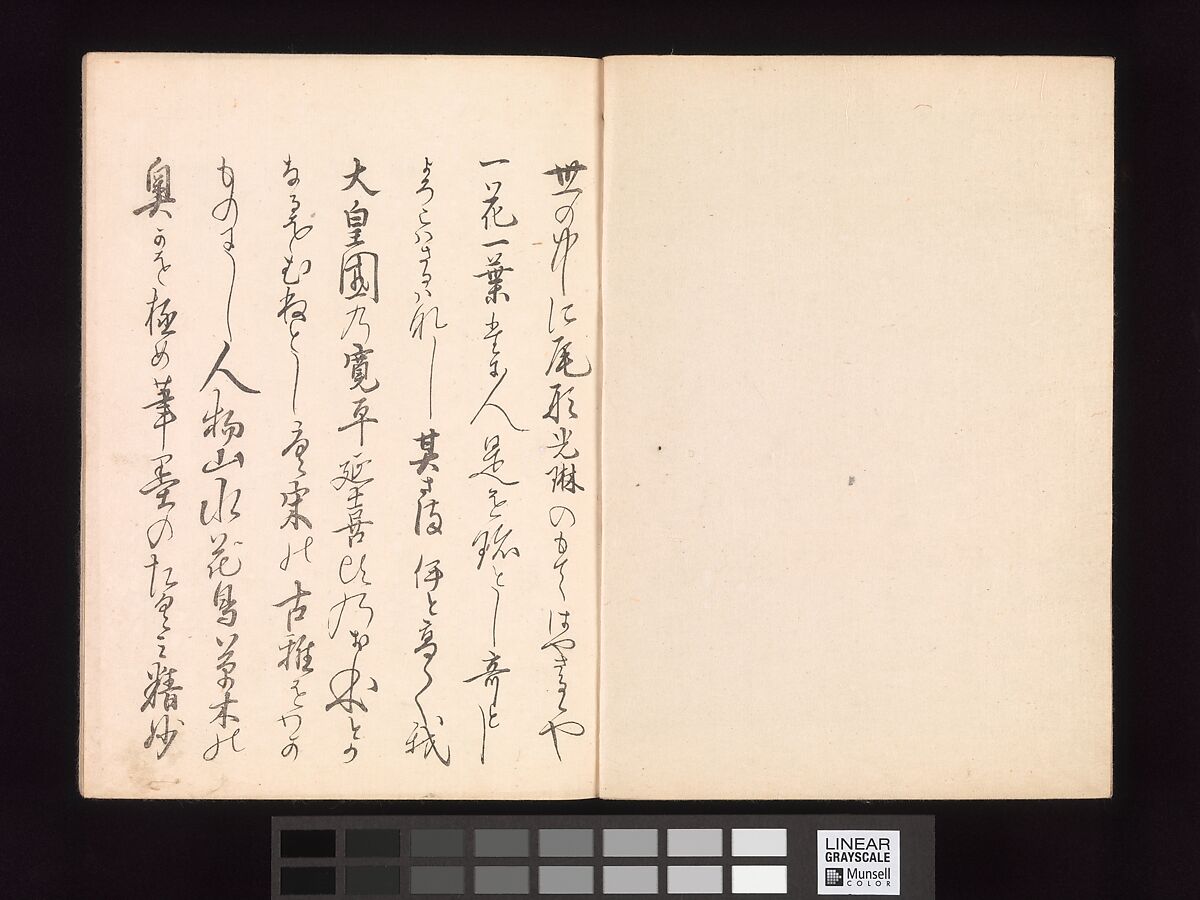 世の中に尾形光琳のもてはやさるゝや
一花一葉きに人是を珍とし奇とし
よろこはさるハなし其さま伊と高く我
大皇国乃寛平延喜比乃お木とか
なるをむねとし唐宋の古雅をわか
ものにし人物山水花鳥草木の
奥かを極め筆墨のたくみ精妙
LINEAR
GRAYSCALE
Munsell
COLOR